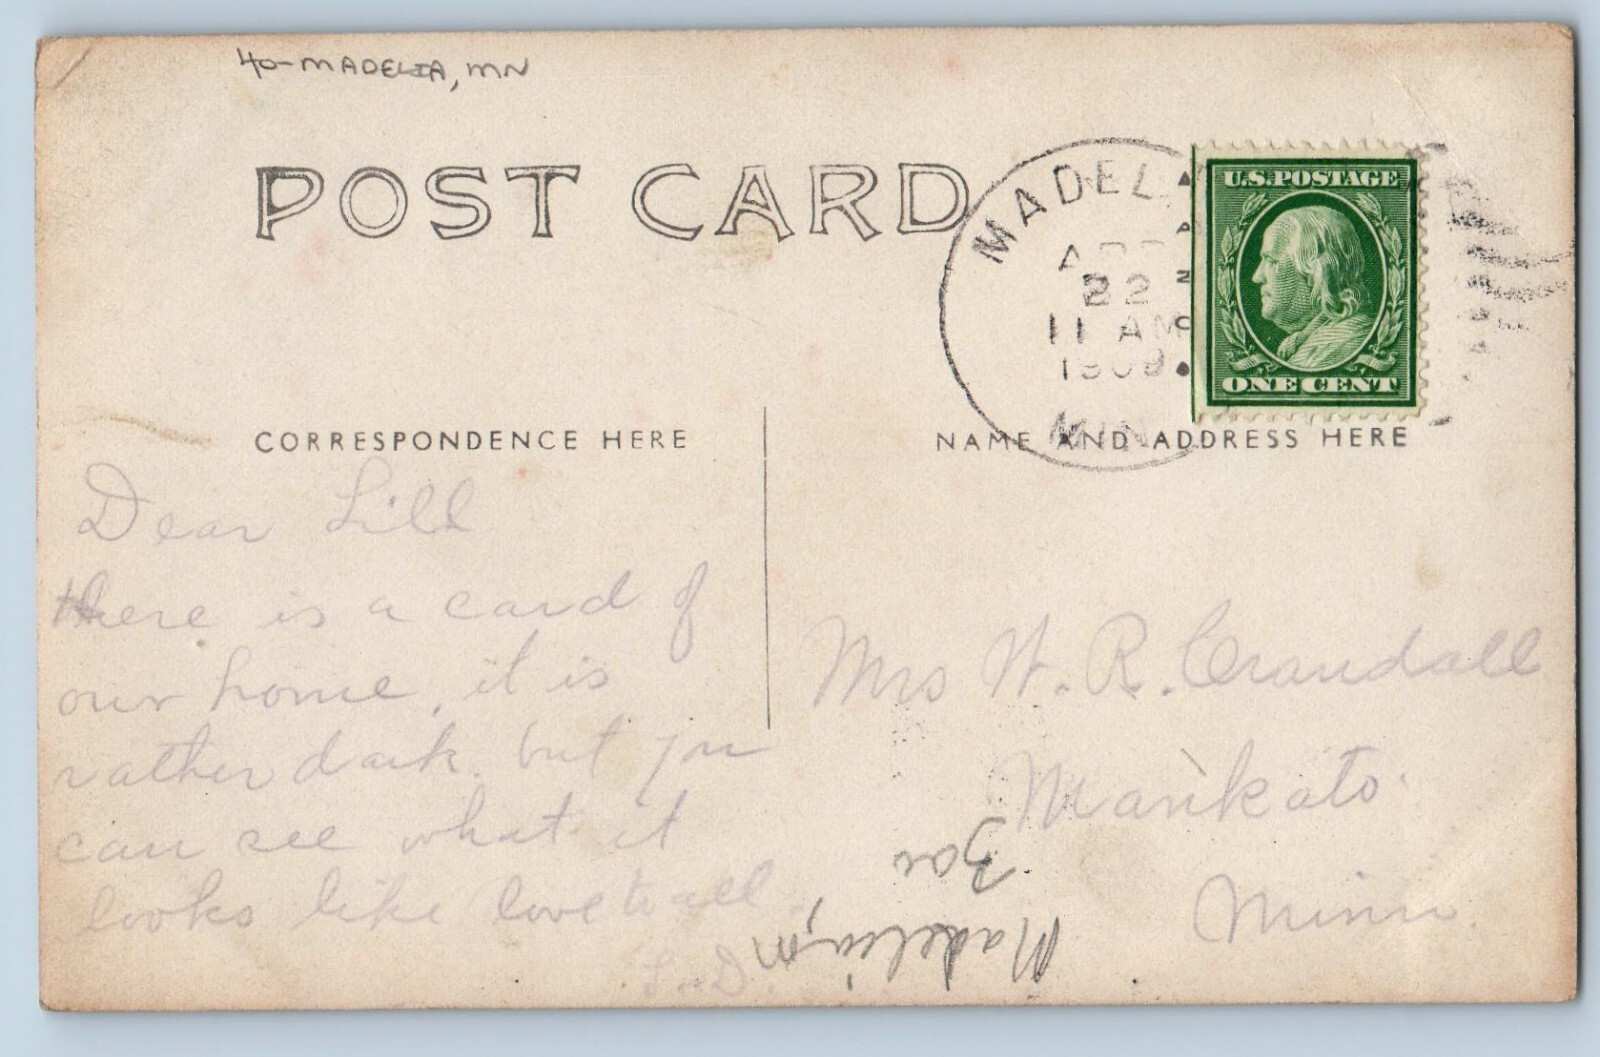 40-MADELIA, MN
POST CARD
MADEL
22
11 AM
1909
MIN
U.S. POSTAGE
ONE CENT
CORRESPONDENCE HERE
NAME AND ADDRESS HERE
Dear Lill
there is a card of
our home, it is
rather dark. but you
can see what it
looks like love to all.
L.D.
Mrs W. R. Crandall
Mankato
Minn.
Madelia, m